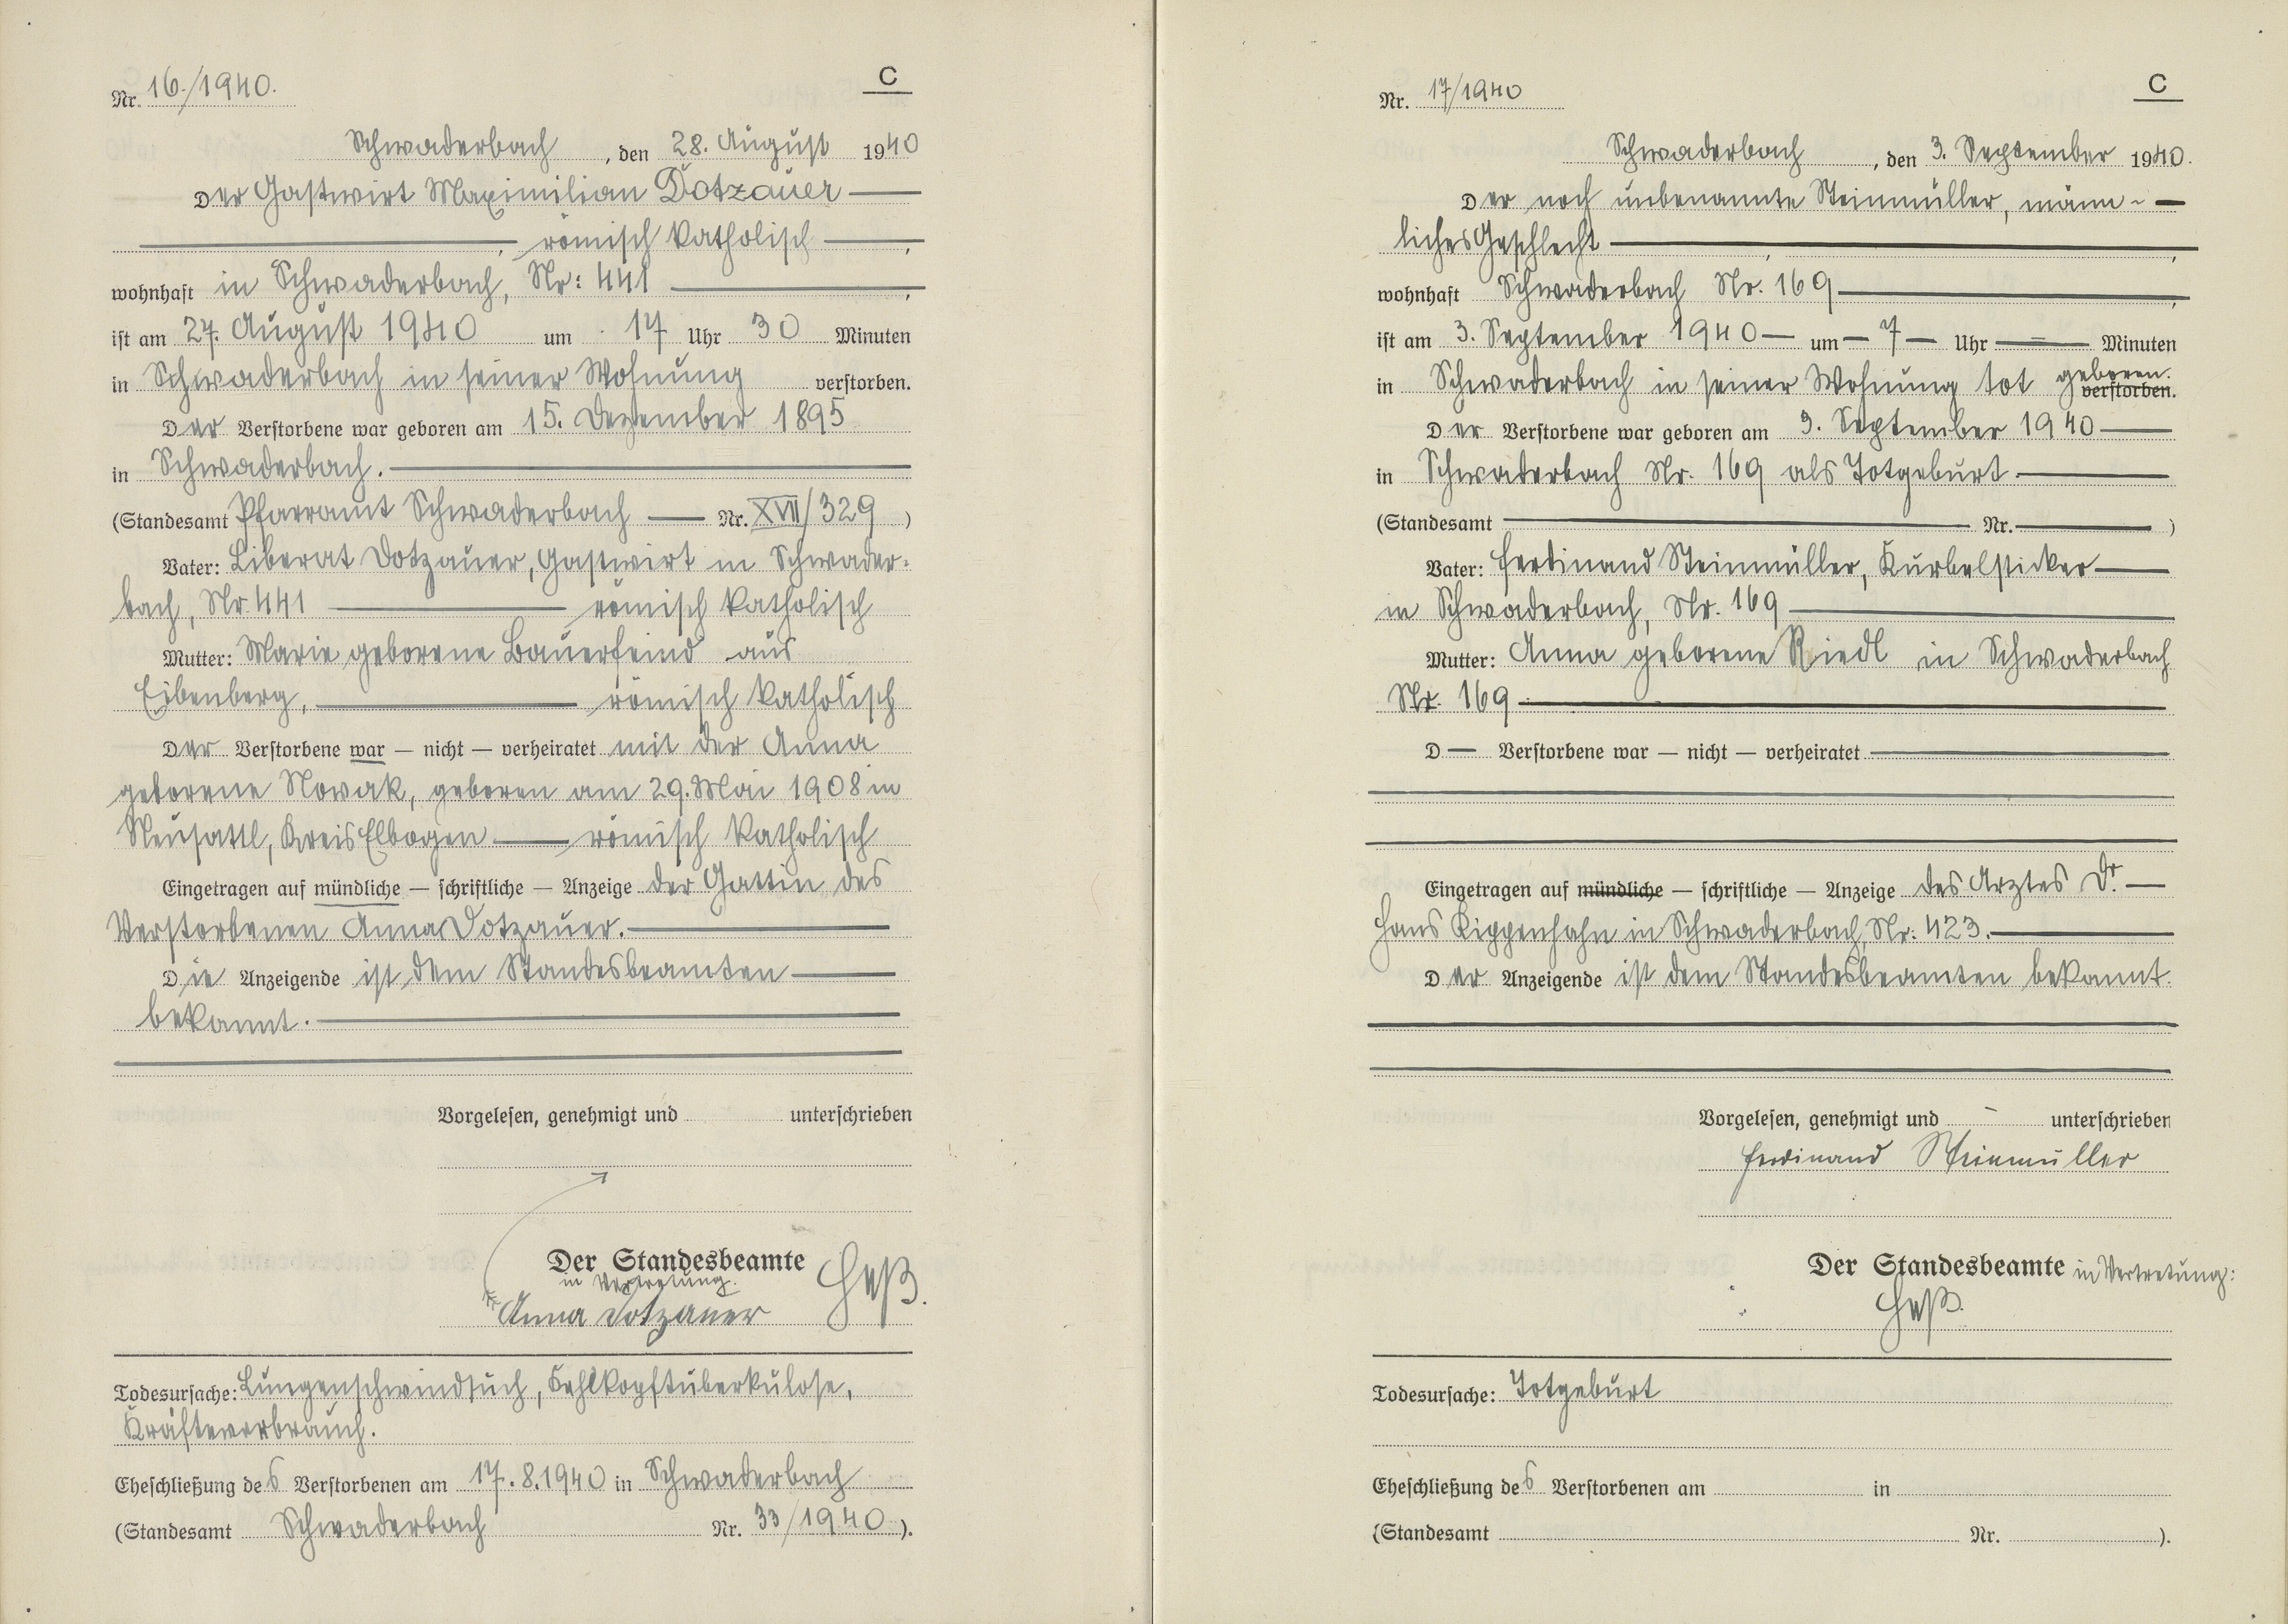 C
Nr. 16./1940.
Schwaderbach, den 28. August 1940
Der Gastwirt Maximilian Dotzauer
, römisch katholisch,
wohnhaft in Schwaderbach, Nr: 441,
ist am 27. August 1940 um 17 Uhr 30 Minuten
in Schwaderbach in seiner Wohnung verstorben.
Der Verstorbene war geboren am 15. Dezember 1895
in Schwaderbach.
(Standesamt Pfarramt Schwaderbach — Nr. XVII/329)
Vater: Liberat Dotzauer, Gastwirt in Schwader-
bach, Nr. 441 — römisch katholisch
Mutter: Marie geborene Bauerfeind aus
Eibenberg, — römisch katholisch
Der Verstorbene war — nicht — verheiratet mit der Anna
geborene Nowak, geboren am 29. Mai 1908 in
Neusattl, Kreis Elbogen — römisch katholisch
Eingetragen auf mündliche — schriftliche — Anzeige der Gattin des
Verstorbenen Anna Dotzauer.
Die Anzeigende ist dem Standesbeamten
bekannt.
Vorgelesen, genehmigt und unterschrieben
Der Standesbeamte
in Vertretung.
Heß.
Anna Dotzauer
Todesursache: Lungenschwindsuch, Kehlkopftuberkulose,
Kräfteverbrauch.
Eheschließung des Verstorbenen am 17.8.1940 in Schwaderbach
(Standesamt Schwaderbach Nr. 33/1940).
C
Nr. 17/1940
Schwaderbach, den 3. September 1940.
Der noch unbenannte Steinmüller, männ-
liches Geschlecht
wohnhaft Schwaderbach Nr. 169,
ist am 3. September 1940 — um — 7 — Uhr — Minuten
in Schwaderbach in seiner Wohnung tot geboren.
verstorben.
Der Verstorbene war geboren am 3. September 1940
in Schwaderbach Nr. 169 als Totgeburt
(Standesamt — Nr. —)
Vater: Ferdinand Steinmüller, Kurbelsticker
in Schwaderbach, Nr. 169
Mutter: Anna geborene Riedl in Schwaderbach
Nr. 169
D — Verstorbene war — nicht — verheiratet
Eingetragen auf mündliche — schriftliche — Anzeige des Arztes Dr.
Hans Kippenhahn in Schwaderbach, Nr: 423.
Der Anzeigende ist dem Standesbeamten bekannt.
Vorgelesen, genehmigt und — unterschrieben
Ferdinand Steinmüller
Der Standesbeamte in Vertretung:
Heß.
Todesursache: Totgeburt
Eheschließung des Verstorbenen am in
(Standesamt Nr. ).